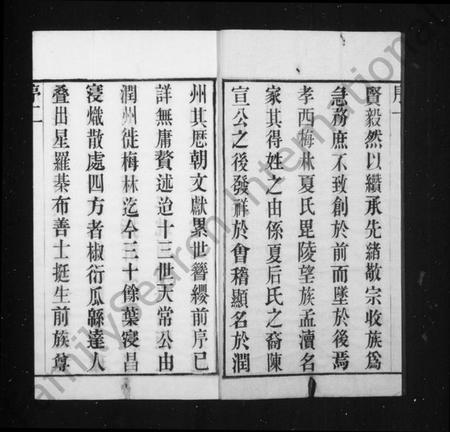 序一
賢毅然以纘承先緒敬宗收族爲
急務庶不致創於前而墜於後焉
孝西梅林夏氏毘陵望族孟瀆名
家其得姓之由係夏后氏之裔陳
宣公之後發祥於會稽顯名於潤
州其歷朝文獻累世簪纓前序已
詳無庸贅述迨十三世天常公由
潤州徙梅林迄今三十餘葉寖昌
寖熾散處四方者椒衍瓜緜達人
疊出星羅棊布善士挺生前族尊
序二
FamilySearch International